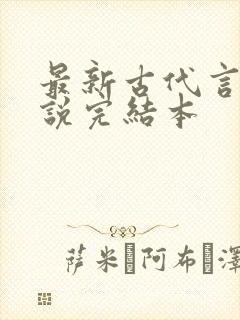 最新古代言
説完結本
萨米 阿布 澤